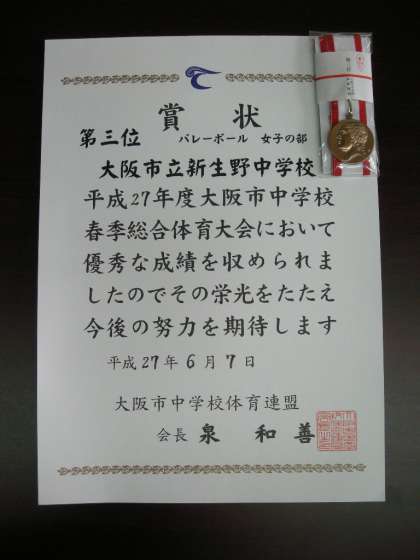 賞状
第三位 バレーボール 女子の部
大阪市立新生野中学校
平成27年度大阪市中学校
春季総合体育大会において
優秀な成績を収められま
したのでその栄光をたたえ
今後の努力を期待します
平成27年6月7日
大阪市中学校体育連盟
会長 泉 和善